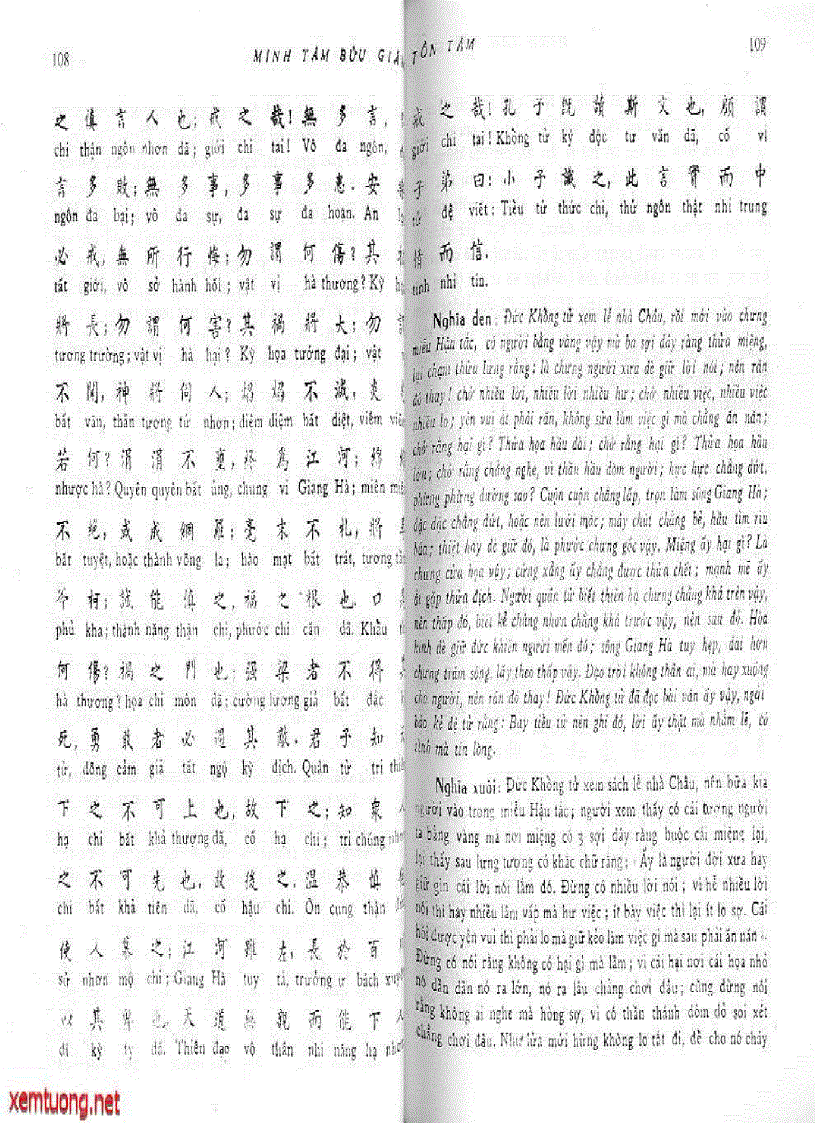 108
MINH TÂM BỬU GIÁ
之慎言人也；戒之哉！無多言，
chi thận ngôn nhơn dã; giới chi tai! Vô đa ngôn,
言多敗；無多事，多事多患．安
ngôn đa bại; vô đa sự, đa sự đa hoạn. An
必戒，無所行悔；勿謂何傷？其
tất giới, vô sở hành hối; vật vị hà thương? Kỳ
將長；勿謂何害？其禍將大；勿
tương trường; vật vị hà hại? Kỳ họa tương đại; vật
不聞，神將伺人；焰焰不滅，炎
bất văn, thần tương tứ nhơn; diệm diệm bất diệt, viêm
若何？涓涓不壅，終為江河；綿
nhược hà? Quyên quyên bất ủng, chung vi Giang Hà; miên
不絕，或成網羅；毫末不札，將
bất tuyệt, hoặc thành võng la; hào mạt bất trát, tương
斧柯；誠能慎之，福之根也．口
phủ kha; thành năng thận chi, phước chi căn dã. Khẩu
何傷？禍之門也．强梁者不得
hà thương? họa chi môn dã; cường lương giả bất đắc
死，勇敢者必遇其敵．君子知
tử, dõng cảm giả tất ngộ kỳ địch. Quân tử tri
下之不可上也，故下之；知衆
hạ chi bất khả thượng dã, cố hạ chi; tri chúng
之不可先也，故後之．温恭慎
chi bất khả tiên dã, cố hậu chi. Ôn cung thận
使人慕之；江河雖左，長於百
sử nhơn mộ chi; Giang Hà tuy tả, trưởng ư bách
以其卑也，天道無親而能下
dĩ kỳ ty dã. Thiên đạo vô thân nhi năng hạ
TÔN TÂM
109
戒之哉！孔子既讀斯文也，顧謂
giới chi tai! Khổng tử ký độc tư văn dã, cố vị
子弟曰：小子識之，此言實而中
tử đệ viết: Tiểu tử thức chi, thử ngôn thật nhi trung
情而信．
tình nhi tín.
Nghĩa đen: Đức Khổng tử xem lễ nhà Châu, rồi mới vào chưng
miếu Hậu tắc, có người bằng vàng vậy mà ba sợi dây ràng thửa miệng,
lại chạm thửa lưng rằng: là chưng người xưa dè giữ lời nói; nên răn
đó thay! chớ nhiều lời, nhiều lời nhiều hư; chớ nhiều việc, nhiều việc
nhiều lo; yên vui ắt phải răn, không sửa làm việc gì mà chẳng ăn năn;
chớ rằng hại gì? Thửa họa hầu dài; chớ rằng hại gì? Thửa họa hầu
lớn; chớ rằng chẳng nghe, vì thần hầu dòm người; hực hực chẳng dứt,
phừng phừng dường sao? Cuộn cuộn chẳng lấp, trọn làm sông Giang Hà;
đặc đặc chẳng đứt, hoặc nên lưới mộc; mảy chút chẳng bẻ, hầu tìm rìu
búa; thiệt hay dè giữ đó, là phước chưng gốc vậy. Miệng ấy hại gì? Là
chưng cửa họa vậy; cứng xẳng ấy chẳng được thửa chết; mạnh mẽ ấy
ắt gặp thửa địch. Người quân tử biết thiên hạ chưng chẳng khá trên vậy,
nên thấp đó, biết kẻ chúng nhơn chẳng khá trước vậy, nên sau đó. Hòa
kính dè giữ đức khiến người mến đó; sông Giang Hà tuy hẹp, dài hơn
chưng trăm sông, lấy theo thấp vậy. Đạo trời không thân ai, mà hay xuống
cho người, nên răn đó thay! Đức Khổng tử đã đọc bài văn ấy vậy, ngài
bảo kẻ đệ tử rằng: Bay tiểu tử nên ghi đó, lời ấy thật mà nhằm lẽ, có
tình mà tin lòng.
Nghĩa xuôi: Đức Khổng tử xem sách lễ nhà Châu, nên bữa kia
người vào trong miếu Hậu tắc; người xem thấy có cái tượng người
ta bằng vàng mà nơi miệng có 3 sợi dây ràng buộc cái miệng lại,
lại thấy sau lưng tượng có khắc chữ rằng: Ấy là người đời xưa hay
giữ gìn cái lời nói lắm đó. Đừng có nhiều lời nói; vì hễ nhiều lời
nói thì hay nhiều lầm vấp mà hư việc; ít bày việc thì lại ít lo sợ. Cái
hồi được yên vui thì phải lo mà giữ kẻo làm việc gì mà sau phải ăn năn.
Đừng có nói rằng không có hại gì mà lầm; vì cái hại nơi cái họa nhỏ
nó dần dần nó ra lớn, nó ra lâu chẳng chơi đâu; cũng đừng nói
rằng không ai nghe mà hòng sợ, vì có thần thánh dòm dỏ soi xét
chẳng chơi đâu. Như lửa mới hừng không lo tắt đi, để cho nó cháy
xemtuong.net